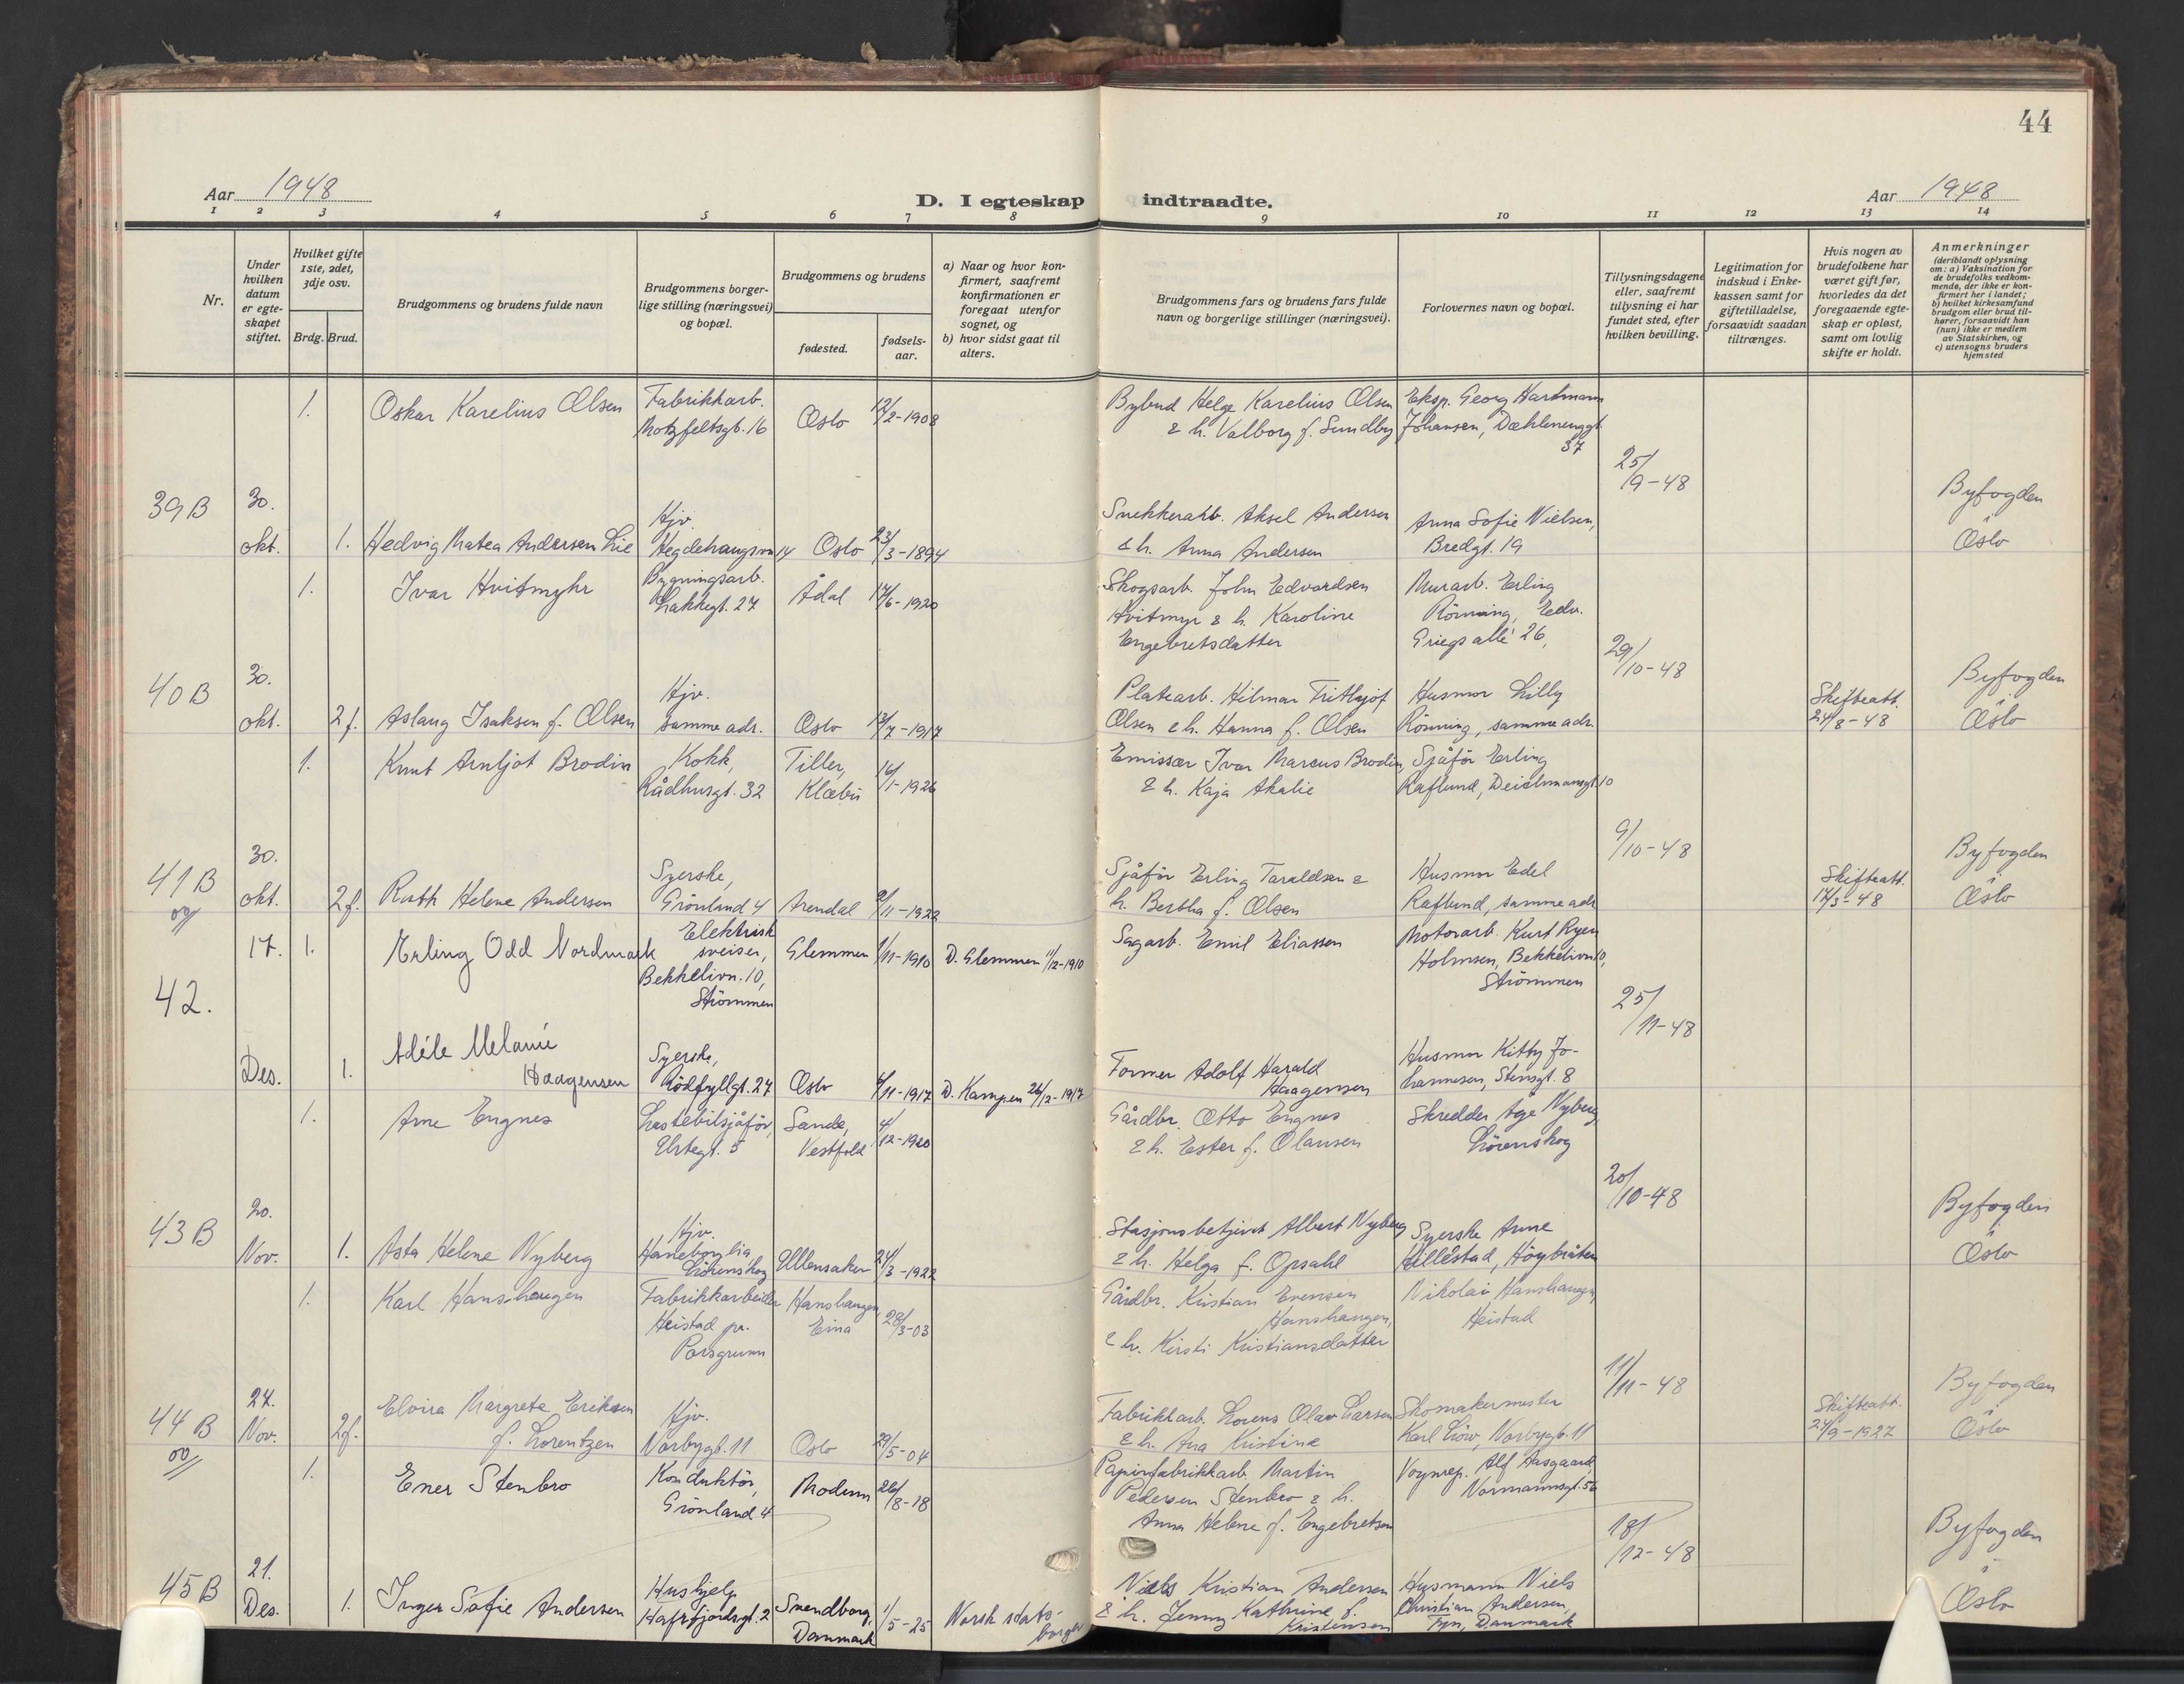 44
Aar 1948
D. I egteskap indtraadte.
Aar 1948
1 2 3 4 5 6 7 8 9 10 11 12 13 14
Nr.
Under
hvilken
datum
er egte-
skapet
stiftet.
Hvilket gifte
1ste, 2det,
3dje osv.
Brdg. Brud.
Brudgommens og brudens fulde navn
Brudgommens borger-
lige stilling (næringsvei)
og bopæl.
Brudgommens og brudens
fødested.
fødsels-
aar.
a) Naar og hvor kon-
firmert, saafremt
konfirmationen er
foregaat utenfor
sognet, og
b) hvor sidst gaat til
alters.
Brudgommens fars og brudens fars fulde
navn og borgerlige stillinger (næringsvei).
Forlovernes navn og bopæl.
Tillysningsdagene
eller, saafremt
tillysning ei har
fundet sted, efter
hvilken bevilling.
Legitimation for
indskud i Enke-
kassen samt for
giftetilladelse,
forsaavidt saadan
tiltrænges.
Hvis nogen av
brudefolkene har
været gift før,
hvorledes da det
foregaaende egte-
skap er opløst,
samt om lovlig
skifte er holdt.
Anmerkninger
(deriblandt oplysning
om: a) Vaksination for
de brudefolks vedkom-
mende, der ikke er kon-
firmert her i landet;
b) hvilket kirkesamfund
brudgom eller brud til-
hører, forsaavidt han
(hun) ikke er medlem
av Statskirken, og
c) utensogns bruders
hjemsted
39 B
30.
okt.
1. Oskar Karelius Olsen
Fabrikkarb.
Motzfeltsgt. 16
Oslo
12/2-1908
Bybud Helge Karelius Olsen
& h. Valborg f. Sundby
Eksp. Georg Hartmann
Johansen, Dæhlenenggt.
37
25/9-48
1. Hedvig Matea Andersen Lie
Hjv.
Hegdehaugsvn 14
Oslo
23/3-1894
Snekkerarb. Aksel Andersen
& h. Anna Andersen
Anna Sofie Nielsen,
Bredgt. 19
Byfogden
i
Oslo
40 B
30.
okt.
1. Ivar Hvitmyhr
Bygningsarb.
Lakkegt. 27
Ådal
17/6-1920
Skogsarb. John Edvardsen
Hvitmyr & h. Karoline
Engebretsdatter
Murarb. Erling
Rönning, Edv.
Griegs allé 26,
29/10-48
2 f. Aslaug Isaksen f. Olsen
Hjv.
samme adr.
Oslo
13/7-1917
Platearb. Hilmar Frithjof
Olsen & h. Hanna f. Olsen
Husmor Lilly
Rönning, samme adr.
Skifteatt.
24/8-48
Byfogden
i
Oslo
41 B
og
30.
okt.
1. Knut Arnljot Brodin
Kokk,
Rådhusgt. 32
Tiller,
Klæbu
16/1-1926
Emissær Ivar Marcus Brodin,
& h. Kaja Akalie
Sjåför Erling
Raflund, Deichmansgt. 10
9/10-48
2 f. Ruth Helene Andersen
Syerske,
Grönland 4
Arendal
9/11-1922
Sjåför Erling Taraldsen &
h. Bertha f. Olsen
Husmor Edel
Raflund, samme adr.
Skifteatt.
17/3-48
Byfogden
i
Oslo
42.
17.
Des.
1. Erling Odd Nordmark
Elektrisk
sveiser,
Bekkelivn. 10,
Strömmen
Glemmen
1/11-1910
D. Glemmen 11/12-1910
Sagarb. Emil Eliassen
Motorarb. Kurt Ryen
Holmsen, Bekkelivn 10,
Strömmen
25/11-48
1. Adéle Melanie
Haagensen
Syerske,
Rödfyllgt. 27
Oslo
4/11-1917
D. Kampen 26/12-1917
Former Adolf Harald
Haagensen
Husmor Kitty Jo-
hannesen, Stensgt. 8
43 B
20.
Nov.
1. Arne Engnes
Lastebilsjåför,
Urtegt. 5
Sande,
Vestfold
4/12-1920
Gårdbr. Otto Engnes
& h. Ester f. Olausen
Skredder Åge Nyberg,
Lörenskog
20/10-48
1. Asta Helene Nyberg
Hjv.
Haneborglia
Lörenskog
Ullensaker
24/3-1922
Stasjonsbetjent Albert Nyberg
& h. Helga f. Opsahl
Syerske Anne
Hillestad, Höybråten
Byfogden
i
Oslo
44 B
og
27.
Nov.
1. Karl Hanshaugen
Fabrikkarbeider
Heistad pr.
Porsgrunn
Hanshaugen,
Eina
28/3-03
Gårdbr. Kristian Evensen
Hanshaugen,
& h. Kirsti Kristiansdatter
Nikolai Hanshaugen,
Heistad
11/11-48
2 f. Elvira Margrete Eriksen
f. Lorentzen
Hjv.
Norbygt. 11
Oslo
29/5-04
Fabrikkarb. Lorens Olav Larsen
& h. Ana Kristine
Skomakermester
Karl Löw, Norbygt. 11
Skifteatt.
24/9-1927
Byfogden
i
Oslo
45 B
21.
Des.
1. Ener Stenbro
Konduktör,
Grönland 4
Modum
26/8-18
Papirfabrikkarb. Martin
Pedersen Stenbro & h.
Anna Helene f. Engebretsen
Vognrep. Alf Aasgaard,
Normannsgt. 56
18/12-48
1. Inger Sofie Andersen
Hushjelp
Hafrsfjordsgt. 2
Svendborg,
Danmark
1/5-25
Norsk stats-
borger
Niels Kristian Andersen
& h. Jenny Kathrine f.
Kristensen
Husmann Niels
Christian Andersen,
Fyn, Danmark
Byfogden
i
Oslo